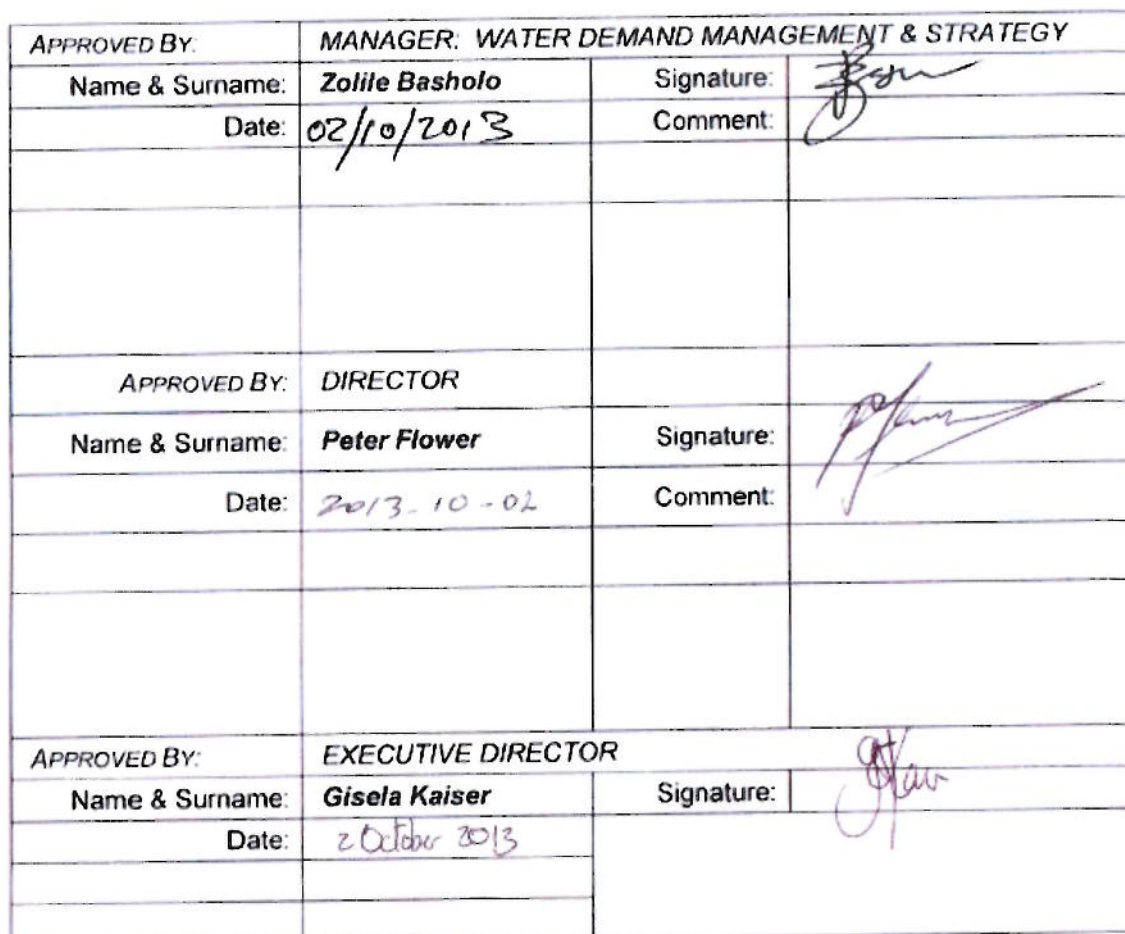 APPROVED BY: MANAGER: WATER DEMAND MANAGEMENT & STRATEGY
Name & Surname: Zolile Basholo Signature:
Date: 02/10/2013 Comment:
APPROVED BY: DIRECTOR
Name & Surname: Peter Flower Signature:
Date: 2013-10-02 Comment:
APPROVED BY: EXECUTIVE DIRECTOR
Name & Surname: Gisela Kaiser Signature:
Date: 2 October 2013